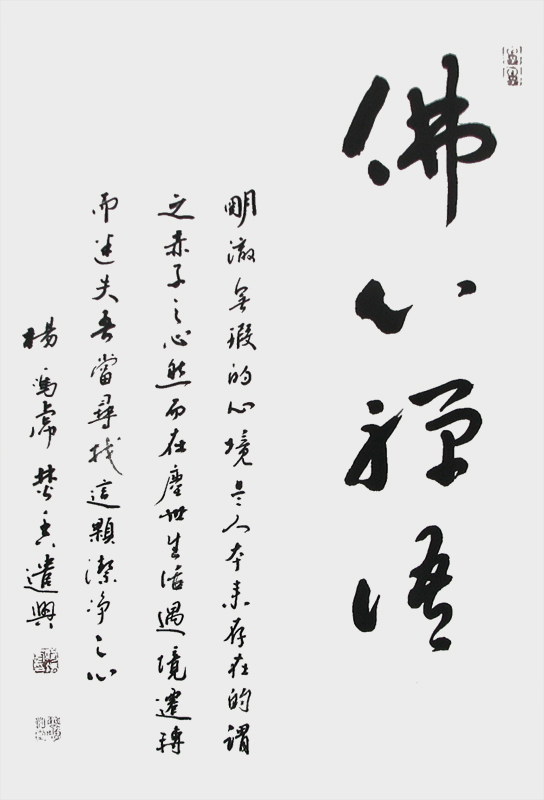 佛心禪語
明澈無瑕的心境是人本来存在的謂
之赤子之心然而在塵世生活遇境遷轉
而迷失吾當尋找這顆潔净之心
楊馮虎焚香遣興